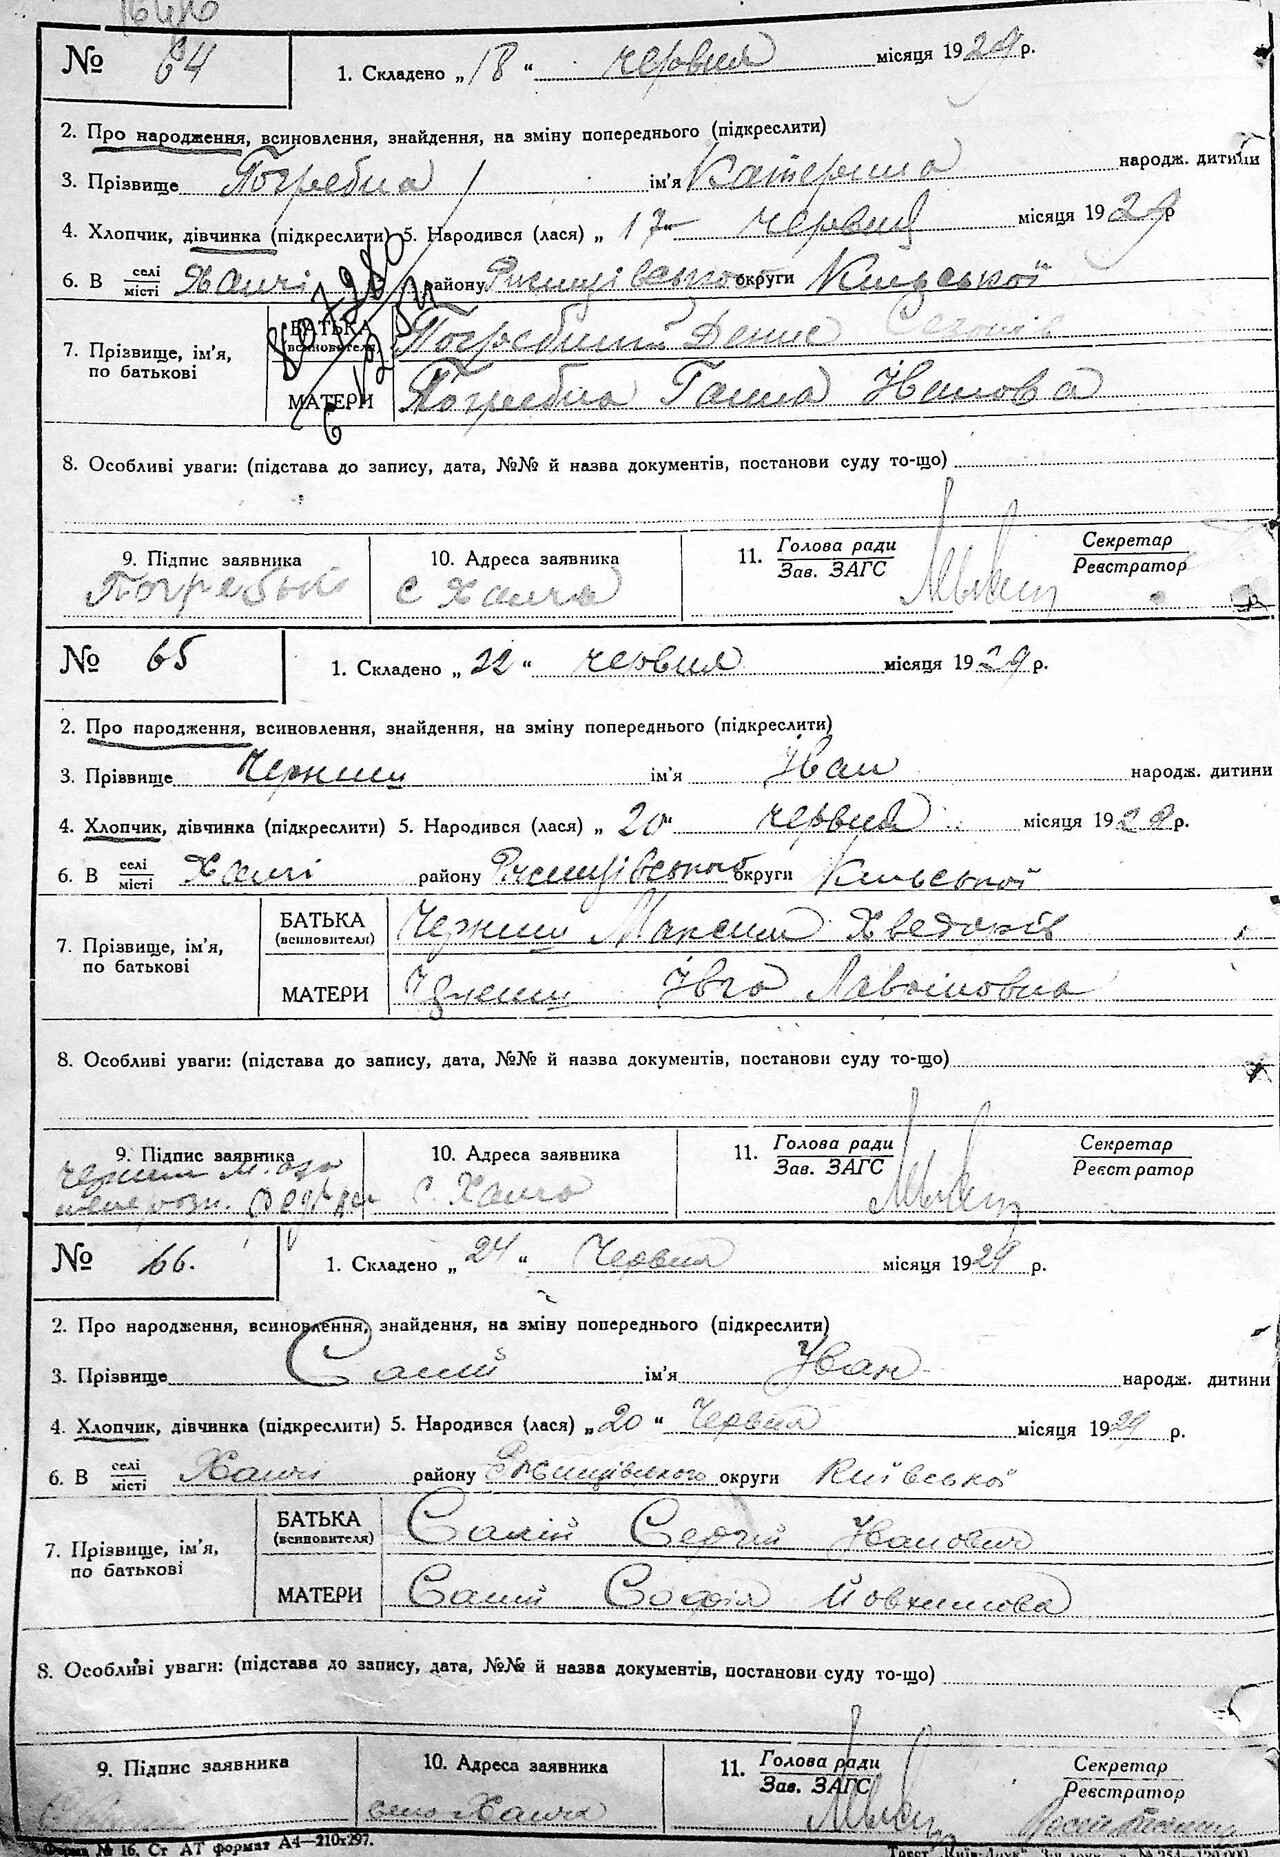 № 64 1. Складено „ 18 “ червня місяця 1929 р.
2. Про народження, всиновлення, знайдення, на зміну попереднього (підкреслити)
3. Прізвище Погребна ім'я Катерина народж. дитини
4. Хлопчик, дівчинка (підкреслити) 5. Народився (лася) „ 17 “ червня місяця 1929 р
6. В селі місті Ханчі району Ржищівського округи Київської
7. Прізвище, ім'я, по батькові БАТЬКА (всиновителя) Погребний Денис
МАТЕРИ Погребна Ганна Іванова
8. Особливі уваги: (підстава до запису, дата, №№ й назва документів, постанови суду то-що)
9. Підпис заявника 10. Адреса заявника 11. Голова ради Зав. ЗАГС Секретар Реєстратор
Погребний с Ханча
№ 65 1. Складено „ 22 “ червня місяця 1929 р.
2. Про народження, всиновлення, знайдення, на зміну попереднього (підкреслити)
3. Прізвище Черниш ім'я Іван народж. дитини
4. Хлопчик, дівчинка (підкреслити) 5. Народився (лася) „ 20 “ червня місяця 1929 р.
6. В селі місті Ханчі району Ржищівського округи Київської
7. Прізвище, ім'я, по батькові БАТЬКА (всиновителя) Черниш Максим Хведорів
МАТЕРИ Черниш Івга
8. Особливі уваги: (підстава до запису, дата, №№ й назва документів, постанови суду то-що)
9. Підпис заявника 10. Адреса заявника 11. Голова ради Зав. ЗАГС Секретар Реєстратор
Черниш М. с. Ханча
№ 66. 1. Складено „ 24 “ Червня місяця 1929 р.
2. Про народження, всиновлення, знайдення, на зміну попереднього (підкреслити)
3. Прізвище Самій ім'я Іван народж. дитини
4. Хлопчик, дівчинка (підкреслити) 5. Народився (лася) „ 20 “ Червня місяця 1929 р.
6. В селі місті Ханчі району Ржищівського округи Київської
7. Прізвище, ім'я, по батькові БАТЬКА (всиновителя) Самій Сергій Іванович
МАТЕРИ Самій Софія Йовхимова
8. Особливі уваги: (підстава до запису, дата, №№ й назва документів, постанови суду то-що)
9. Підпис заявника 10. Адреса заявника 11. Голова ради Зав. ЗАГС Секретар Реєстратор
село Ханча
Форма № 16. Ст АТ формат А4—210х297.